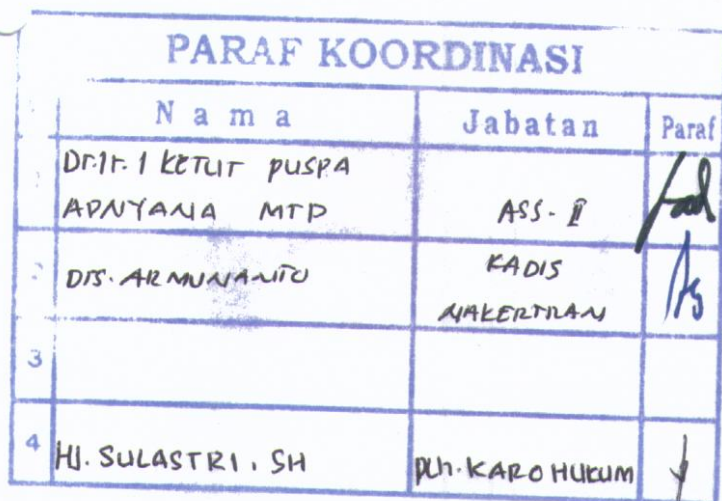 PARAF KOORDINASI
Nama Jabatan Paraf
Dr.Ir. I KETUT PUSPA
ADNYANA MTP ASS-II
DRS. ARMUNANTO KADIS
NAKERTRAN
3
4 HJ. SULASTRI, SH PLH. KARO HUKUM